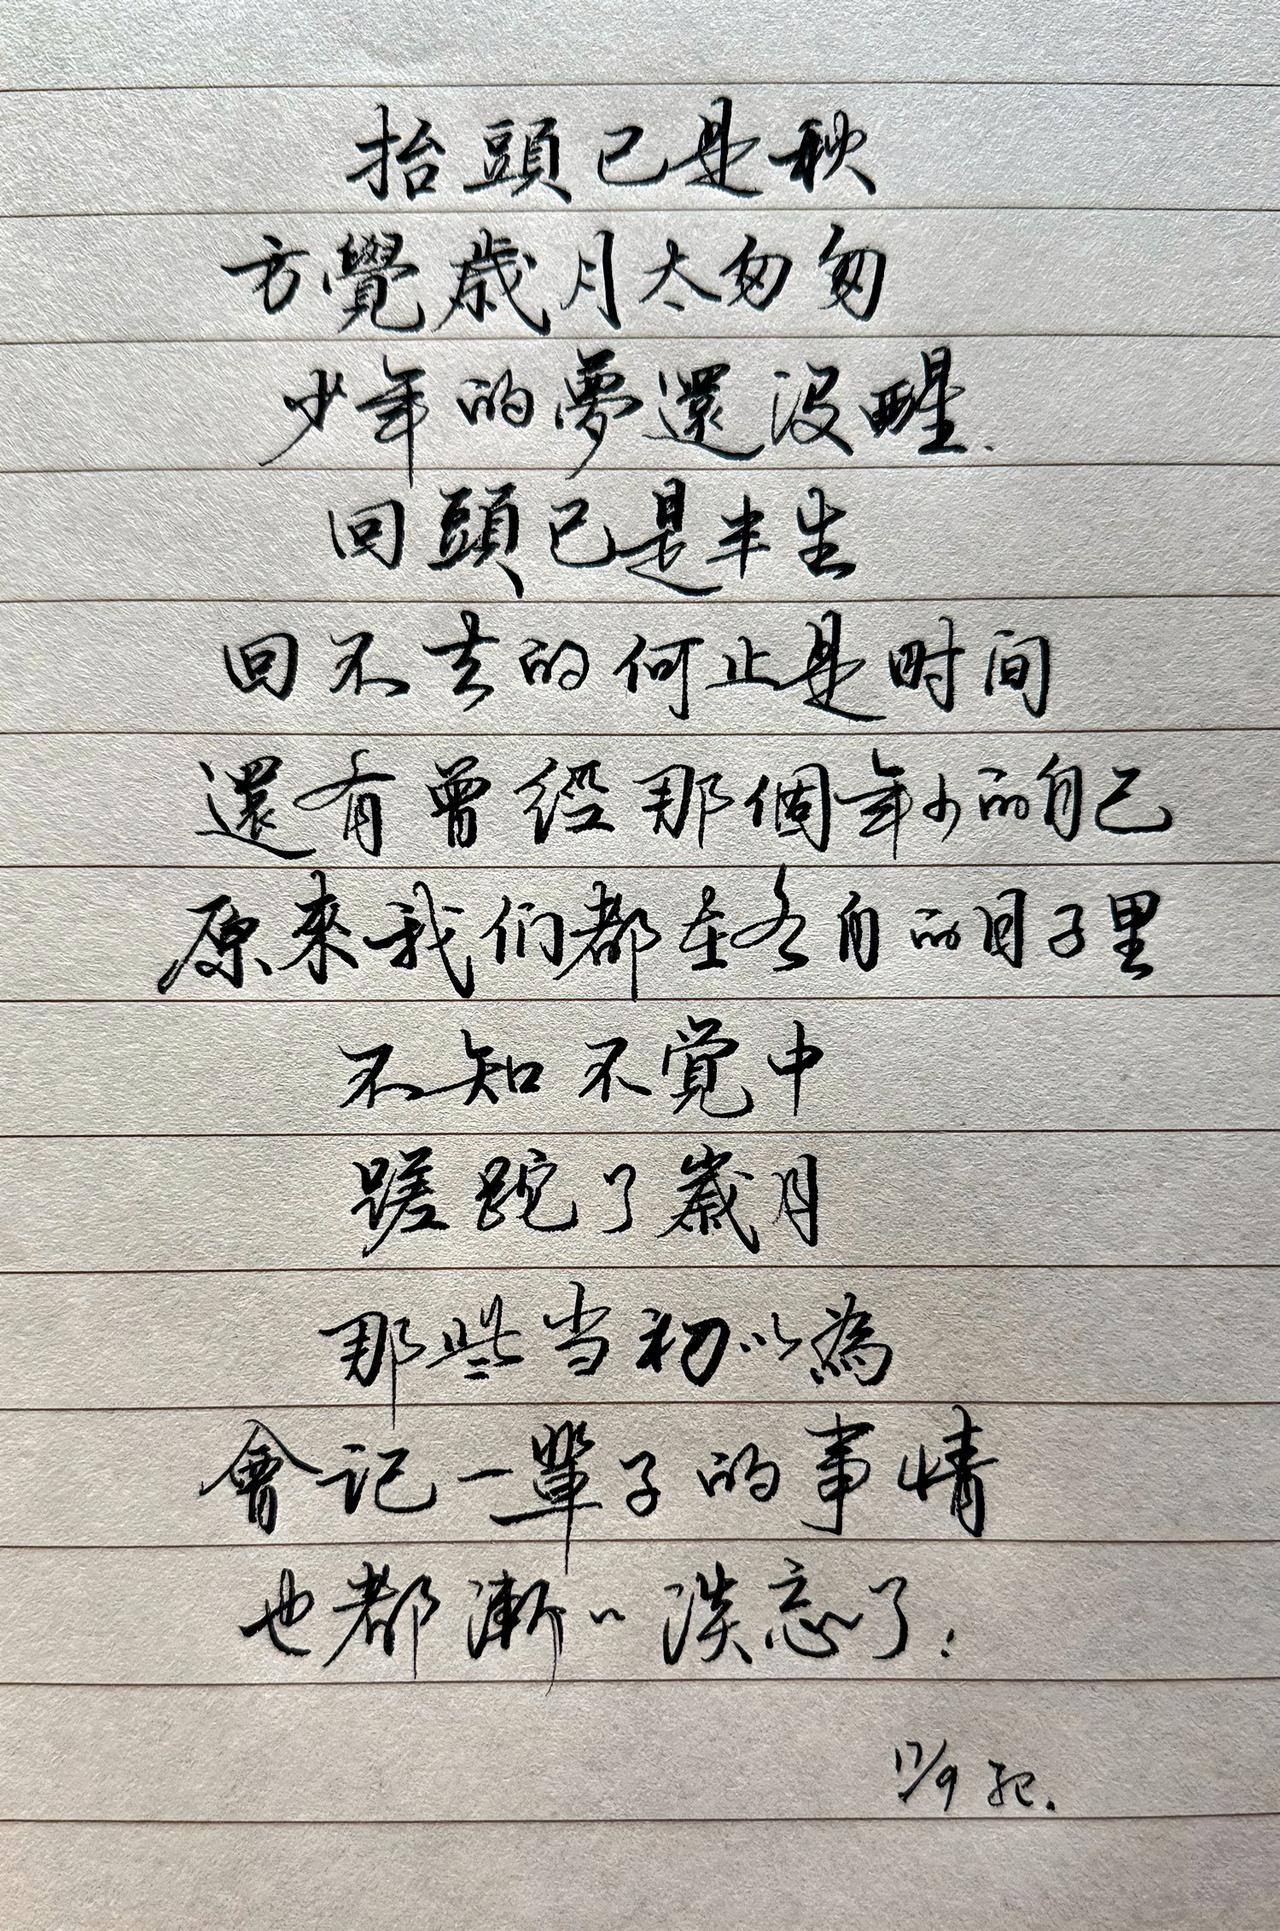 抬頭已是秋
方覺歲月太匆匆
少年的夢還沒醒.
回頭已是半生
回不去的何止是时间
還有曾经那個年少的自己
原來我们都在各自的日子里
不知不覚中
蹉跎了歲月
那些当初以為
會记一輩子的事情
也都漸〃淡忘了.
17/9 记.